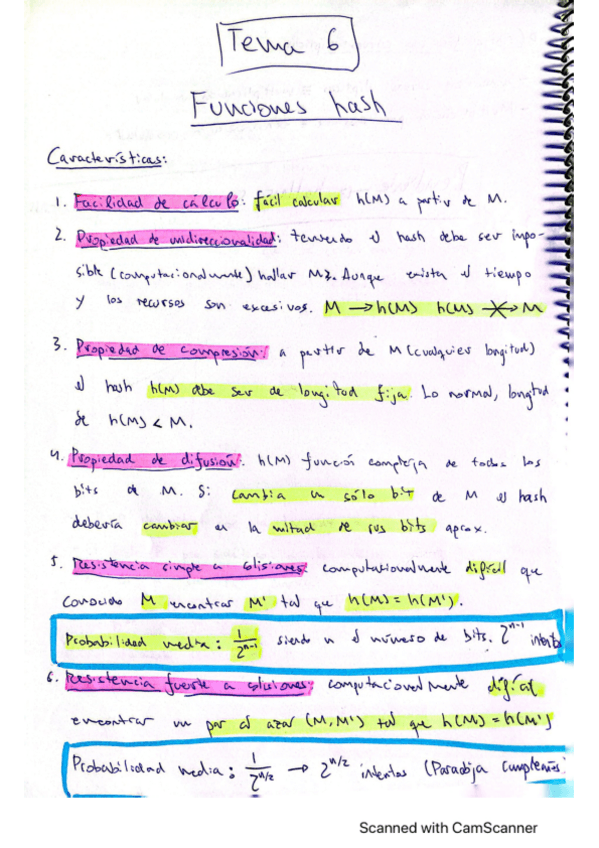 Tema 6
Funciones hash
Características:
1. Facilidad de cálculo: fácil calcular h(M) a partir de M.
2. Propiedad de unidireccionalidad: teniendo el hash debe ser impo-
sible (computacionalmente) hallar M. Aunque exista el tiempo
y los recursos son excesivos. M → h(M) h(M) ↛ M
3. Propiedad de compresión: a partir de M (cualquier longitud)
el hash h(M) debe ser de longitud fija. Lo normal, longitud
de h(M) < M.
4. Propiedad de difusión: h(M) función compleja de todos los
bits de M. Si cambia un sólo bit de M el hash
debería cambiar en la mitad de sus bits aprox.
5. Resistencia simple a colisiones: computacionalmente difícil que
conocido M encontrar M' tal que h(M) = h(M').
Probabilidad media: 1/2^(n-1) siendo n el número de bits. 2^(n-1) intentos
6. Resistencia fuerte a colisiones: computacionalmente difícil
encontrar un par al azar (M, M') tal que h(M) = h(M')
Probabilidad media: 1/2^(n/2) → 2^(n/2) intentos (Paradoja cumpleaños
Scanned with CamScanner